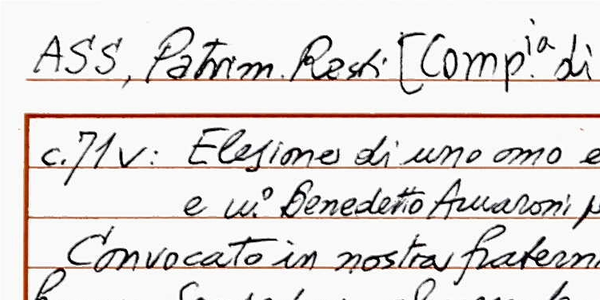 ASS, Patrim. Resti [Comp.ia di
c. 71v: Elesione di uno omo e
e m.o Benedetto Amaroni p
Convocato in nostra fratern